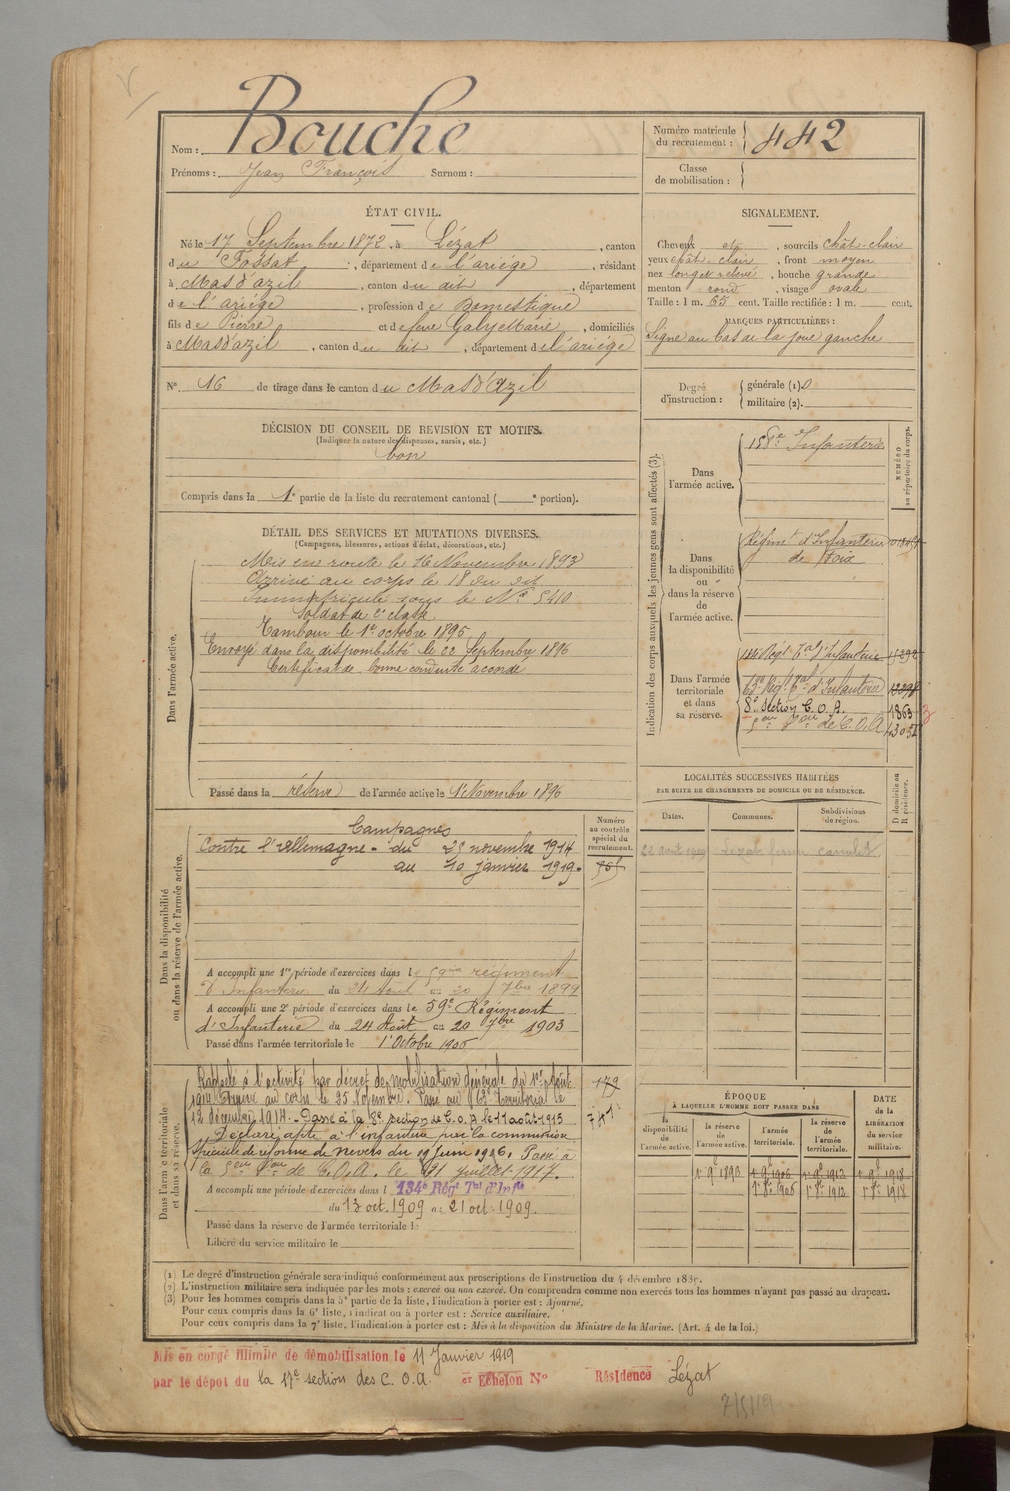 Nom : Bouche
Prénoms : Jean François Surnom :
Numéro matricule du recrutement : 442
Classe de mobilisation :
ÉTAT CIVIL.
Né le 17 Septembre 1872, à Lézat, canton
du Fossat, département de l'ariége, résidant
à Mas d'azil, canton du dit, département
de l'ariége, profession de Domestique
fils de Pierre et de feue Galy Marie, domiciliés
à Mas d'azil, canton du dit, département de l'ariége
N° 16 de tirage dans le canton du Mas d'Azil
SIGNALEMENT.
Cheveux et, sourcils chât-clair
yeux chât-clair, front moyen
nez long et relevé, bouche grande
menton rond, visage ovale
Taille : 1 m. 65 cent. Taille rectifiée : 1 m. cent.
MARQUES PARTICULIÈRES :
Signe au bas de la joue gauche
Degré d'instruction : générale (1) 0
militaire (2).
DÉCISION DU CONSEIL DE REVISION ET MOTIFS.
(Indiquer la nature des dispenses, sursis, etc.)
bon
Compris dans la 1e partie de la liste du recrutement cantonal ( e portion).
DÉTAIL DES SERVICES ET MUTATIONS DIVERSES.
(Campagnes, blessures, actions d'éclat, décorations, etc.)
Dans l'armée active.
Mis en route le 16 Novembre 1893
Arrivé au corps le 18 du dit
Immatriculé sous le N° 5410
Soldat de 2e classe
Tambour le 1er octobre 1895
Envoyé dans la disponibilité le 22 Septembre 1896
Certificat de bonne conduite accordé
Passé dans la réserve de l'armée active le 1er Novembre 1896
Indication des corps auxquels les jeunes gens sont affectés (3).
NUMÉRO au répertoire du corps.
Dans l'armée active.
158e Infanterie
Dans la disponibilité ou dans la réserve de l'armée active.
Régimt d'Infanterie
de Foix
Dans l'armée territoriale et dans sa réserve.
134 Régt Tal d'Infanterie
63e Régt Tal d'Infanterie
8e Section C. O. A. 1863
5eme Son de C. O. A
LOCALITÉS SUCCESSIVES HABITÉES
PAR SUITE DE CHANGEMENTS DE DOMICILE OU DE RÉSIDENCE.
Dates. Communes. Subdivisions de région. D domicile ou R résidence.
Lézat ferme
Dans la disponibilité ou dans la réserve de l'armée active.
Numéro au contrôle spécial du recrutement.
Campagnes
Contre l'Allemagne - du 25 novembre 1914
au 10 janvier 1919.
A accompli une 1re période d'exercices dans le 59eme régiment
d'Infanterie du 24 Août au 20 7bre 1899
A accompli une 2e période d'exercices dans le 59e Régiment
d'Infanterie du 24 Août au 20 7bre 1903
Passé dans l'armée territoriale le 1er Octobre 1906
Dans l'armée territoriale et dans sa réserve.
Rappelé à l'activité par décret de mobilisation générale du 1er Août
1914. Arrivé au corps le 25 Novembre. Passé au 63e Territorial le
12 décembre 1914. - Passé à la 8e section de C. O. A. le 11 août 1915
Déclaré apte à l'infanterie par la commission
spéciale de réforme de Nevers du 19 Juin 1916. Passé à
la 5eme Son de C. O. A. le 31 juillet 1917.
A accompli une période d'exercices dans l 134e Régt Tal d'Infie
du 13 oct. 1909 au 21 oct. 1909.
Passé dans la réserve de l'armée territoriale le
Libéré du service militaire le
179
741
ÉPOQUE
À LAQUELLE L'HOMME DOIT PASSER DANS
DATE de la LIBÉRATION du service militaire.
la disponibilité de l'armée active. la réserve de l'armée active. l'armée territoriale. la réserve de l'armée territoriale.
1er 9bre 1896 1er 9bre 1906 1er 9bre 1912 1er 9bre 1918
1er 8bre 1906 1er 8bre 1912 1er 8bre 1918
(1) Le degré d'instruction générale sera indiqué conformément aux prescriptions de l'instruction du 4 décembre 1889.
(2) L'instruction militaire sera indiquée par les mots : exercé ou non exercé. On comprendra comme non exercés tous les hommes n'ayant pas passé au drapeau.
(3) Pour les hommes compris dans la 5e partie de la liste, l'indication à porter est : Ajourné.
Pour ceux compris dans la 6e liste, l'indication à porter est : Service auxiliaire.
Pour ceux compris dans la 7e liste, l'indication à porter est : Mis à la disposition du Ministre de la Marine. (Art. 4 de la loi.)
Mis en congé illimité de démobilisation le 11 Janvier 1919
par le dépôt du la 17e section des C. O. A. et Echelon N° Résidence Lézat